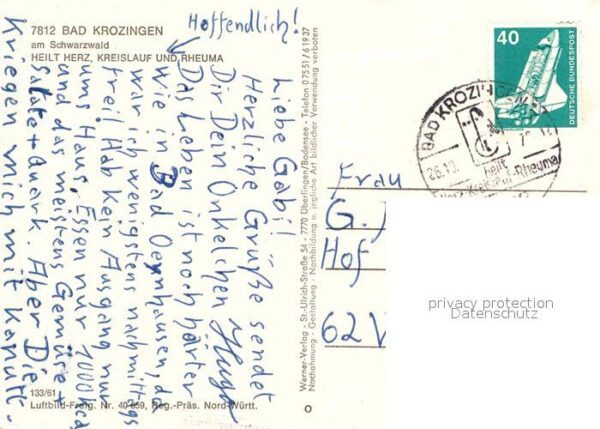 7812 BAD KROZINGEN
am Schwarzwald
HEILT HERZ, KREISLAUF UND RHEUMA
Hoffendlich!
Liebe Gabi!
Herzliche Grüße sendet
Dir Dein Onkelchen Hugo
Das Leben ist noch härter
wie in Bad Oeynhausen, da
war ich wenigstens nachmittags
frei! Hab kein Ausgang nur
ums Haus. Essen nur 1000 kcal
und das meistens Gemüse +
Salate + Quark. Aber Die
Kriegen mich nit kaputt-
133/61
Luftbild-Freig. Nr. 40/859, Reg.-Präs. Nord-Württ.
Werner-Verlag · St.-Ulrich-Straße 54 · 7770 Überlingen/Bodensee · Telefon 07551/61937
Nachahmung · Gestaltung · Nachbildung u. jegliche Art bildlicher Verwendung verboten
40
DEUTSCHE BUNDESPOST
BAD KROZINGEN
26.10.
heilt
Herz-Kreislauf-Rheuma
Frau
G.
Hof
62
privacy protection
Datenschutz